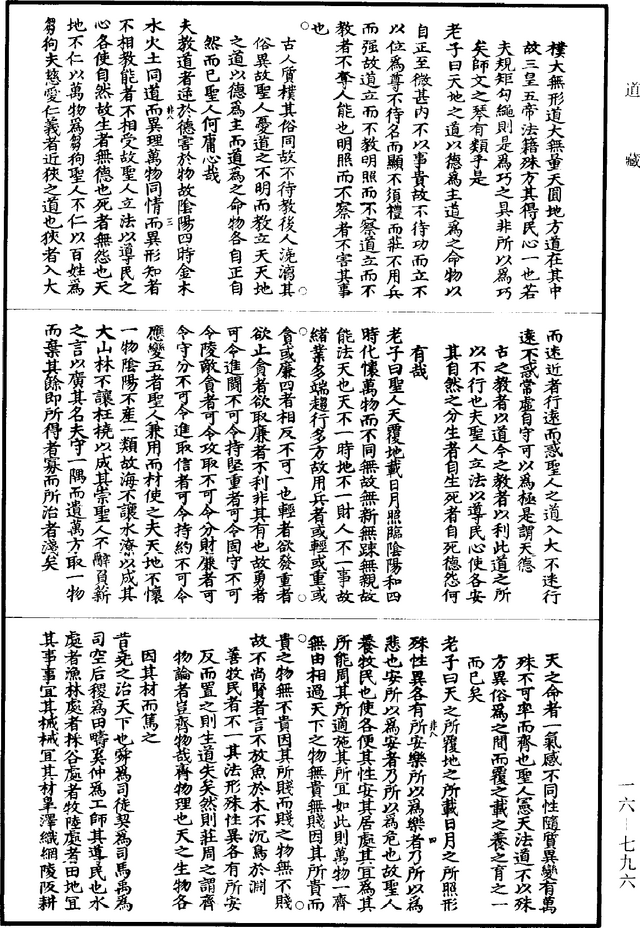 道藏
樸大無形道大無量天圓地方道在其中
故三皇五帝法籍殊方其得民心一也若
夫規矩勾繩則是為巧之具非所以為巧
矣師文之琴有類乎是
老子曰天地之道以德為主道為之命物以
自正至微甚内不以事貴故不待功而立不
以位為尊不待名而顯不須禮而莊不用兵
而强故道立而不教明照而不察道立而不
教者不奪人能也明照而不察者不害其事
也
古人質樸其俗同故不待教後人澆漓其
俗異故聖人憂道之不明而教立夫天地
之道以德為主而道為之命物各自正自
然而已聖人何庸心哉
夫教道者逆於德害於物故陰陽四時金木
水火土同道而異理萬物同情而異形知者
不相教能者不相受故聖人立法以導民之
心各使自然故生者無德也死者無怨也天
地不仁以萬物為芻狗聖人不仁以百姓為
芻狗夫慈愛仁義者近狹之道也狹者入大
而迷近者行遠而惑聖人之道入大不迷行
遠不惑常虛自守可以為極是謂天德
古之教者以道今之教者以利此道之所
以不行也夫聖人立法以導民心使各安
其自然之分生者自生死者自死德怨何
有哉
老子曰聖人天覆地載日月照臨陰陽和四
時化懷萬物而不同無故無新無疎無親故
能法天也天不一時地不一財人不一事故
緒業多端趨行多方故用兵者或輕或重或
貪或廉四者相反不可一也輕者欲發重者
欲止貪者欲取廉者不利非其有也故勇者
可令進鬪不可令持堅重者可令固守不可
令陵敵貪者可令攻取不可令分財廉者可
令守分不可令進取信者可令持約不可令
應變五者聖人兼用而材使之夫天地不懷
一物陰陽不產一類故海不讓水潦以成其
大山林不讓枉橈以成其崇聖人不辭負薪
之言以廣其名夫守一隅而遺萬方取一物
而棄其餘即所得者寡而所治者淺矣
天之命者一氣感不同性隨質異變有萬
殊不可率而齊也聖人憲天法道不以殊
方異俗為之間而覆之載之養之育之一
而已矣
老子曰天之所覆地之所載日月之所照形
殊性異各有所安樂所以為樂者乃所以為
悲也安所以為安者乃所以為危也故聖人
養牧民也使各便其性安其居處其宜為其
所能周其所適施其所宜如此則萬物一齊
無由相過天下之物無貴無賤因其所貴而
貴之物無不貴因其所賤而賤之物無不賤
故不尚賢者言不放魚於木不沉鳥於淵
善牧民者不一其法形殊性異各有所安
反而置之則生道失矣然則莊周之謂齊
物論者豈齊物哉齊物理也天之生物各
因其材而篤之
昔堯之治天下也舜為司徒契為司馬禹為
司空后稷為田疇奚仲為工師其導民也水
處者漁林處者採谷處者牧陸處者田地宜
其事事宜其械械宜其材皋澤織網陵阪耕
一六—七九六